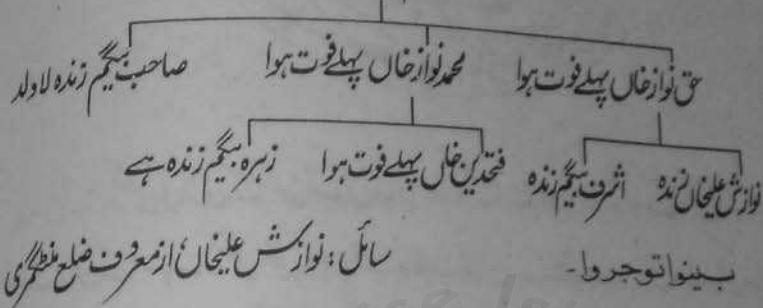 حق نواز خاں پہلے فوت ہوا محمد نواز خاں پہلے فوت ہوا صاحب بیگم زندہ لاولد
نوازش علیخاں زندہ اشرف بیگم زندہ فتحدین خاں پہلے فوت ہوا زہرہ بیگم زندہ ہے
بینوا توجروا۔ سائل: نوازش علیخاں از معروف ضلع منٹگمری